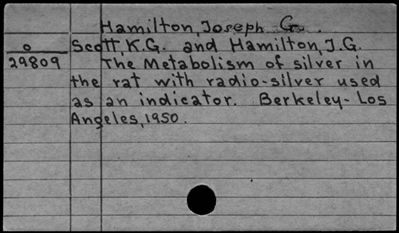 Hamilton, Joseph G.
o Scott, K.G. and Hamilton, J.G.
29809 The Metabolism of silver in
the rat with radio-silver used
as an indicator. Berkeley-Los
Angeles, 1950.